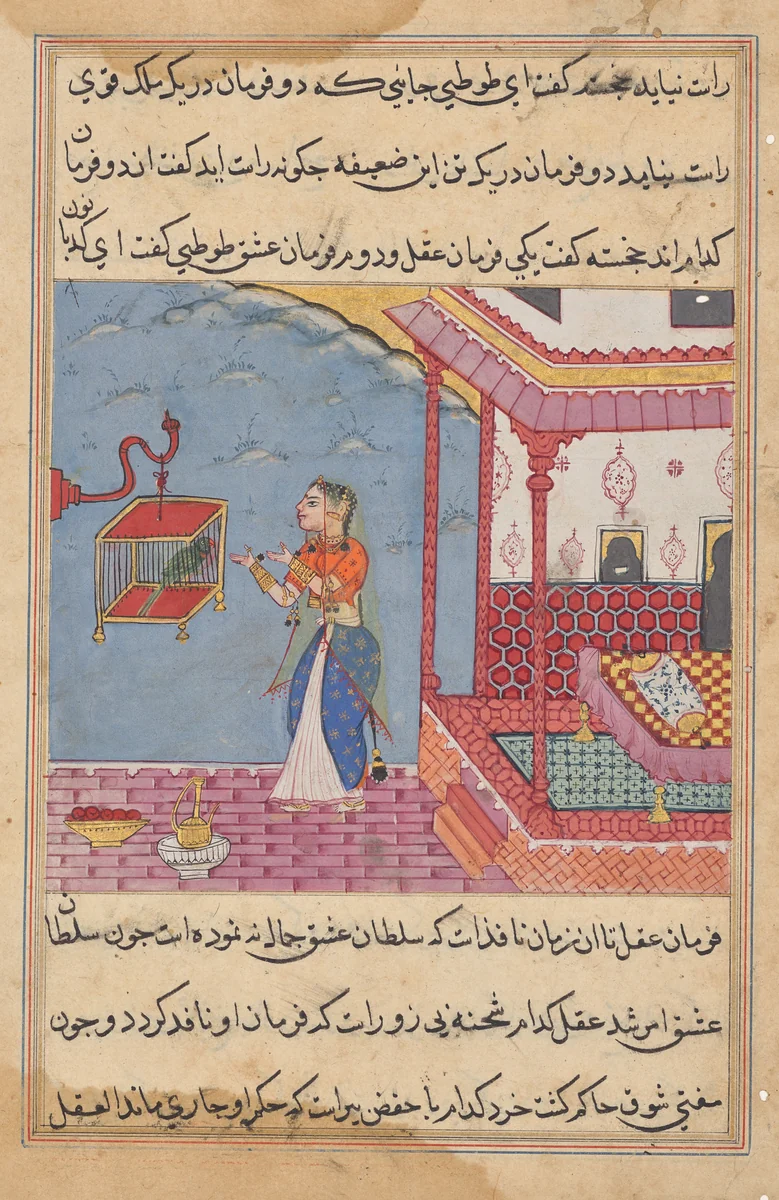 راست نیاید خجسته کفت ای طوطیی جایئي که دو فرمان در یک ملک قوي
راست نیاید دو فرمان در یک تن این ضعیفه جکونه راست اید کفت ان دو فرمان
کدام اند خجسته کفت یکي فرمان عقل و دوم فرمان عشق طوطیي کفت ا ي کدبانون
فرمان عقل تا ان زمان نافذ است که سلطان عشق جمال نه نموده است جون سلطان
عشق امر شد عقل کدام شحنه بي زور است که فرمان او نافد کردد و جون
مفتي شوق حاکم کشت خرد کدام که حکم او جاري ماند العقل